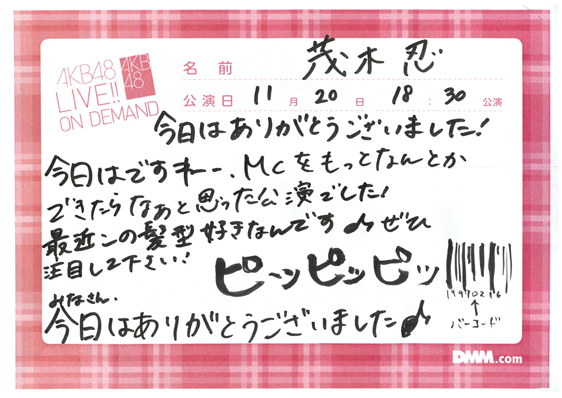 AKB48
LIVE!!
ON DEMAND
AKB
48
名前 茂木忍
公演日 11月20日 18:30公演
今日はありがとうございました!
今日はですねー、MCをもっとなんとか
できたらなぁと思った公演でした!
最近この髪型好きなんです♪ぜひ
注目して下さい!
ピーッピッピッ
19970216
↑
バーコード
みなさん、
今日はありがとうございました♪
DMM.com